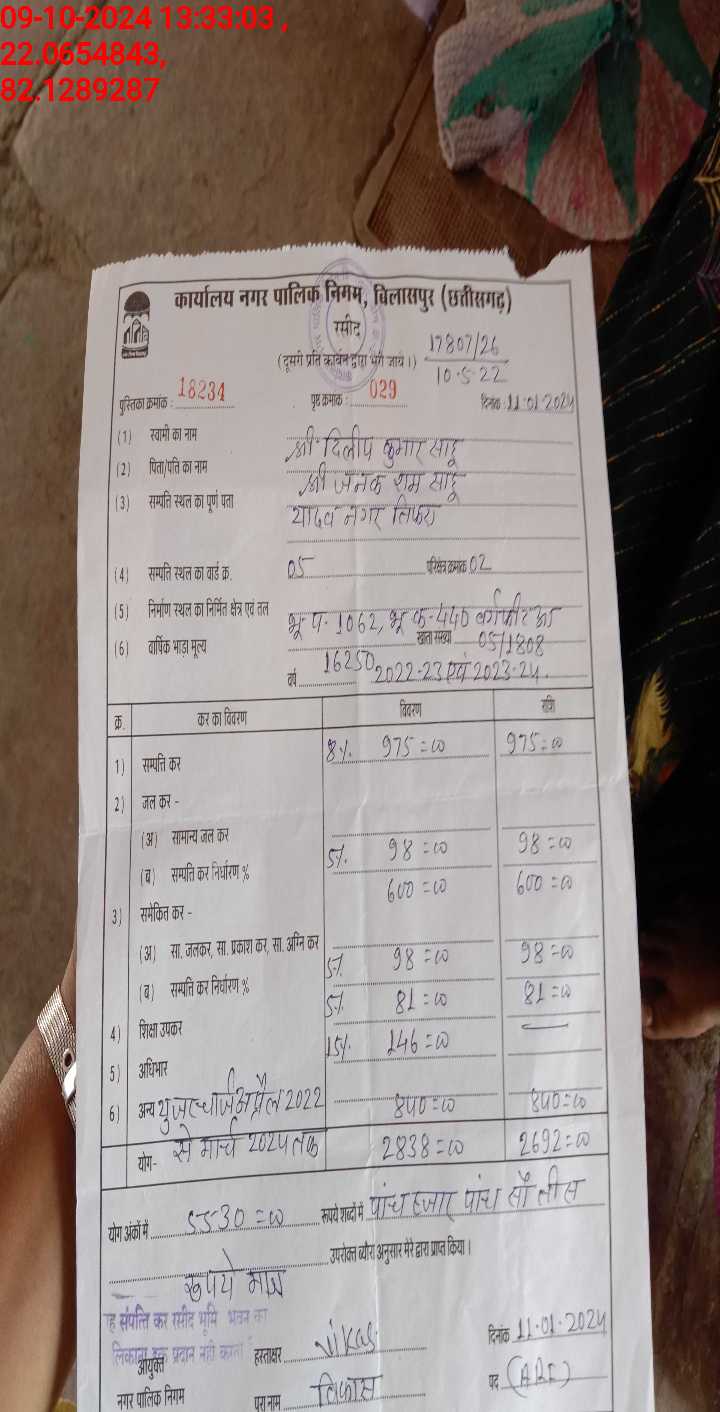 09-10-2024 13:33:03 ,
22.0654843,
82.1289287
कार्यालय नगर पालिक निगम, बिलासपुर (छत्तीसगढ़)
रसीद
(दूसरी प्रति कार्बन द्वारा भरी जाये।) 17807/26
10-5-22
पुस्तिका क्रमांक : 18234 पृष्ठ क्रमांक : 029 दिनांक : 11-01-2024
(1) स्वामी का नाम श्री दिलीप कुमार साहू
(2) पिता/पति का नाम श्री जनक राम साहू
(3) सम्पति स्थल का पूर्ण पता यादव नगर तिफरा
(4) सम्पति स्थल का वार्ड क्र. 05 परिक्षेत्र क्रमांक 02
(5) निर्माण स्थल का निर्मित क्षेत्र एवं तल भू-प-1062, भू-क-440 वर्गफीट
(6) वार्षिक भाड़ा मूल्य खाता संख्या 05/1808
16250 वर्ष 2022-23 एवं 2023-24.
क्र. कर का विवरण विवरण राशि
1) सम्पत्ति कर 8% 975=00 975=00
2) जल कर -
(अ) सामान्य जल कर 5% 98=00 98=00
(ब) सम्पति कर निर्धारण % 600=00 600=00
3) समेकित कर -
(अ) सा. जलकर, सा. प्रकाश कर, सा. अग्नि कर 5% 98=00 98=00
(ब) सम्पति कर निर्धारण % 5% 81=00 81=00
4) शिक्षा उपकर 15% 146=00 —
5) अधिभार
6) अन्य युजरचार्ज अप्रैल 2022 840=00 840=00
योग- से मार्च 2024 तक 2838=00 2692=00
योग अंकों में 5530=00 रूपये शब्दों में पांच हजार पांच सौ तीस
उपरोक्त ब्यौरा अनुसार मेरे द्वारा प्राप्त किया।
रूपये मात्र
ह संपत्ति कर रसीद भूमि भवन का
हक प्रदान नहीं करता
आयुक्त हस्ताक्षर Vikas दिनांक 11-01-2024
नगर पालिक निगम पूरा नाम विकास पद